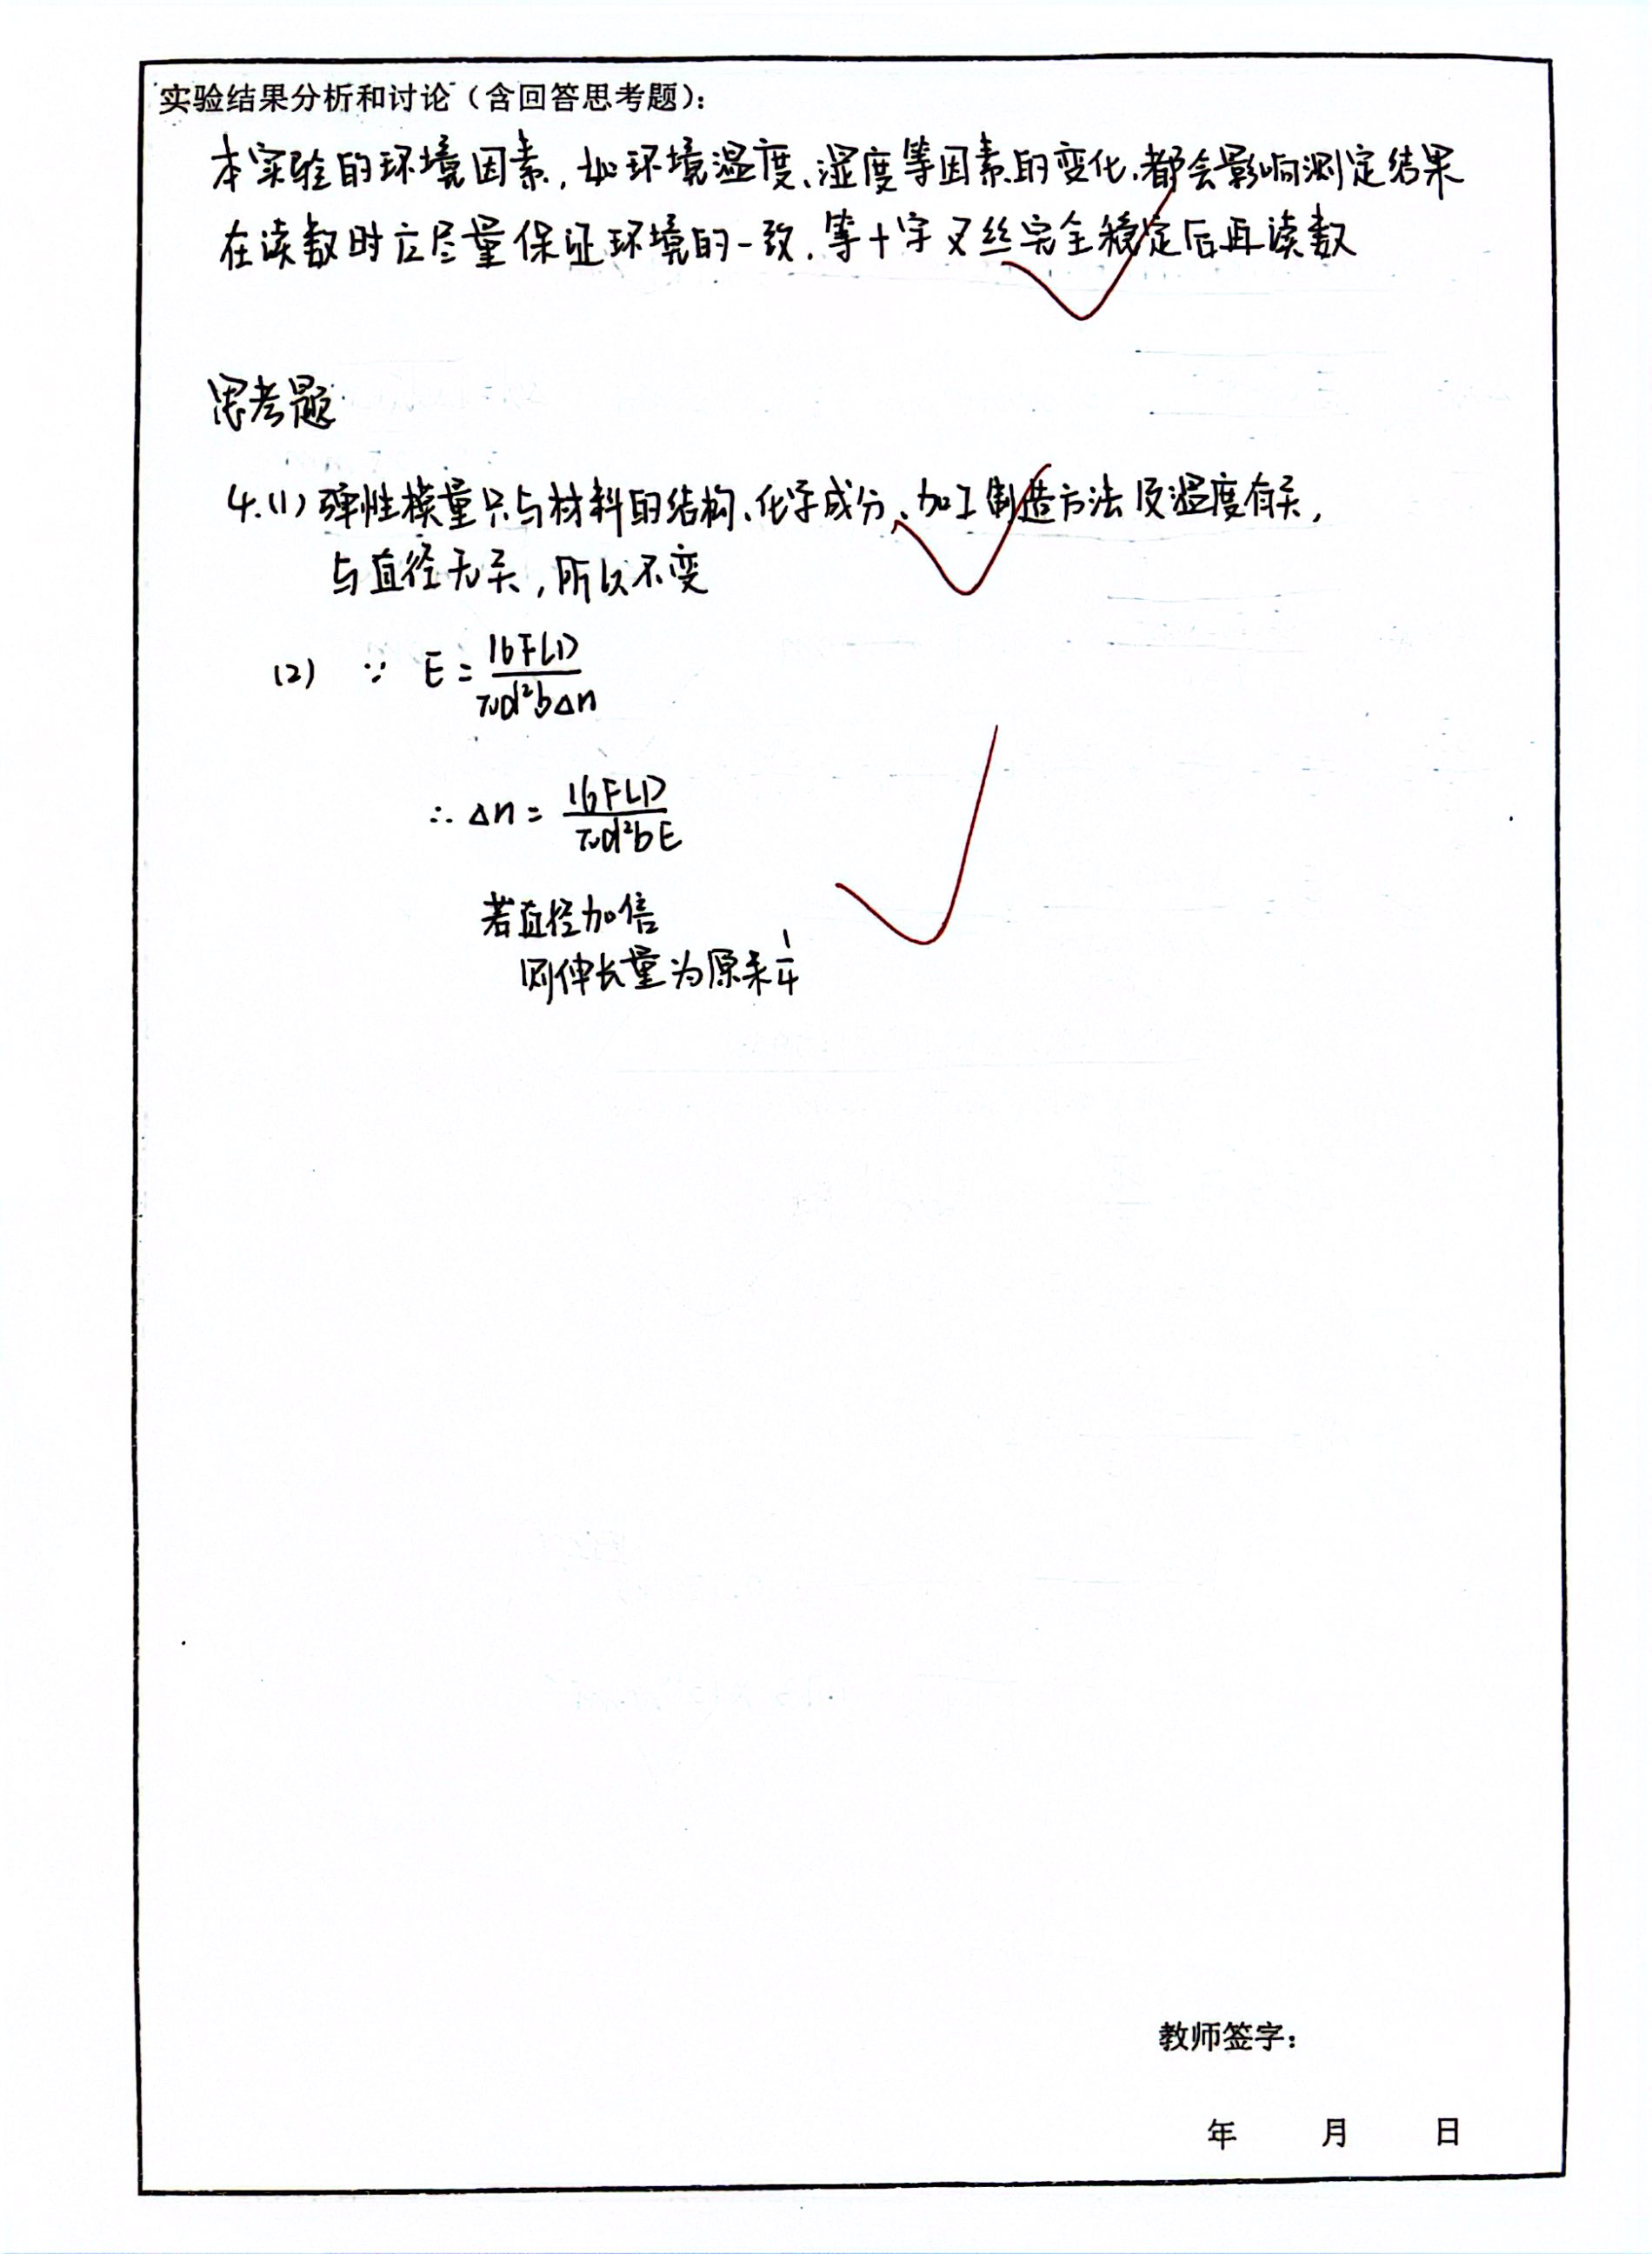 实验结果分析和讨论（含回答思考题）：
本实验的环境因素，如环境温度、湿度等因素的变化，都会影响测定结果
在读数时应尽量保证环境的一致，等十字叉丝完全稳定后再读数
思考题：
4.(1) 弹性模量只与材料的结构、化学成分、加工制造方法及温度有关，
与直径无关，所以不变
(2) ∵ E = 16FLD/πd²bΔn
∴ Δn = 16FLD/πd²bE
若直径加倍
则伸长量为原来1/4
教师签字：
年 月 日